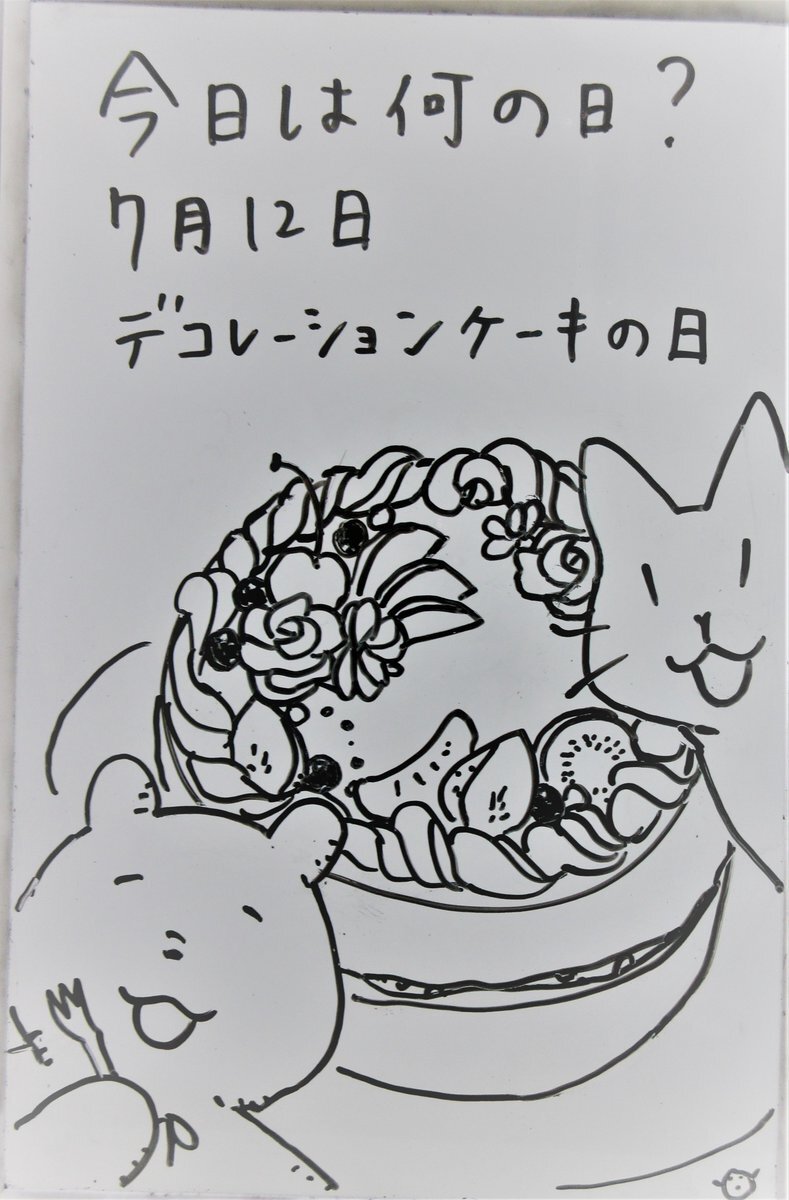 今日は何の日?
7月12日
デコレーションケーキの日